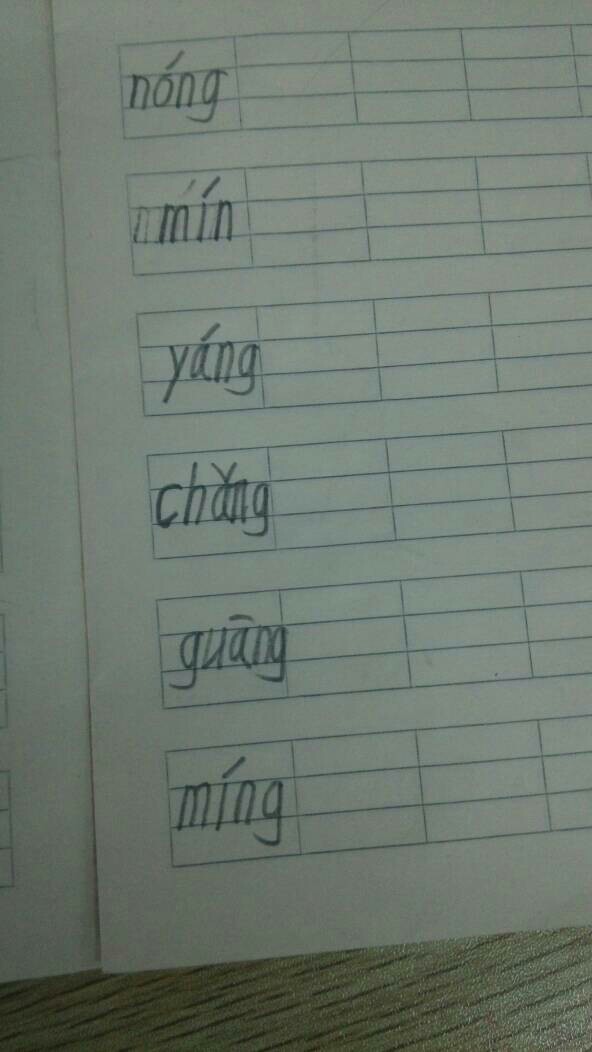 nóng
mín
yáng
chǎng
guāng
míng